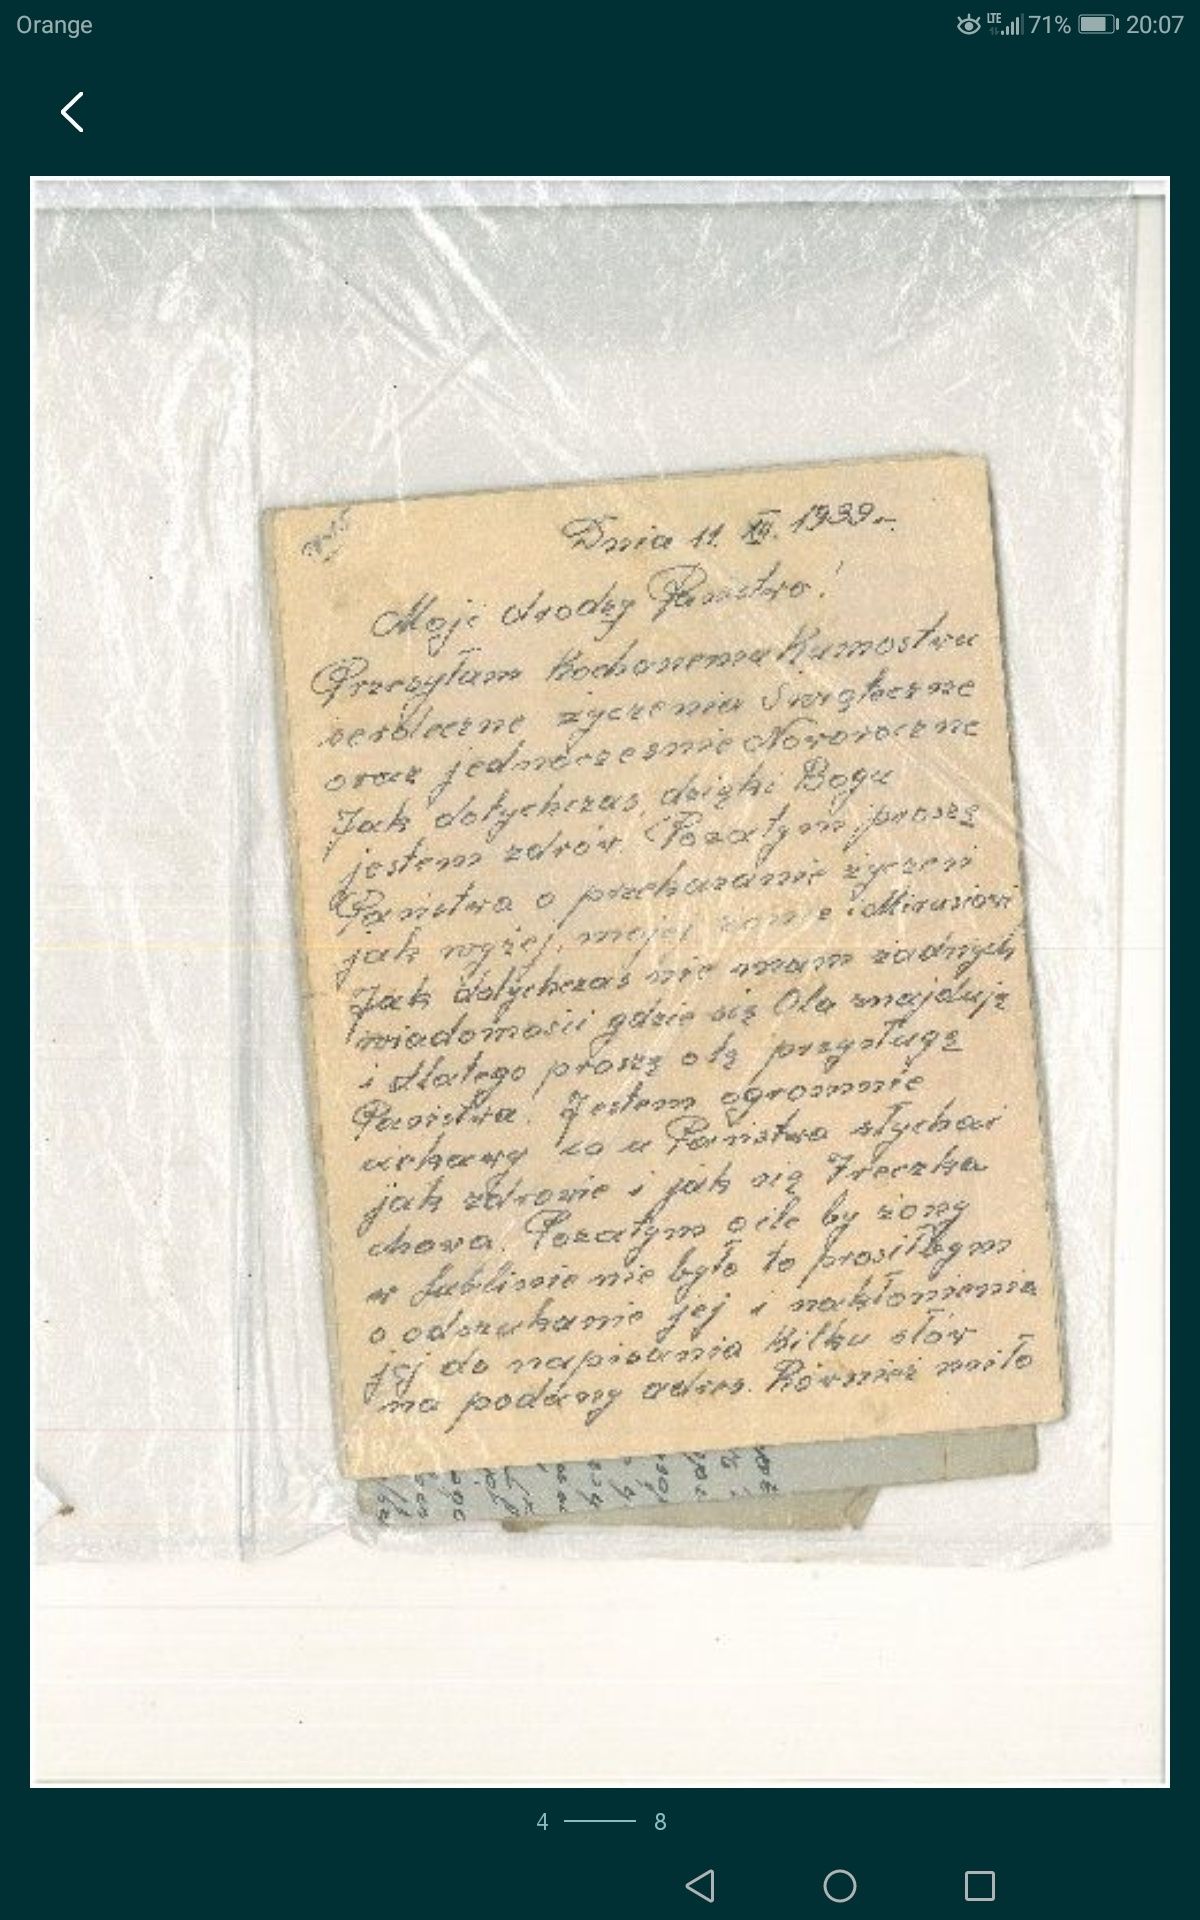 Orange
LTE 71% 20:07
Dnia 11. XII. 1939 r.
Moji drodzy Państwo!
Przesyłam Kochanemu Kumostwu
serdeczne życzenia Świąteczne
oraz jednocześnie Noworoczne
Jak dotychczas, dzięki Bogu
jestem zdrów. Pozatym proszę
Państwa o przekazanie życzeń
jak wyżej, mojej żonie i Mirusiowi
Jak dotychczas nie mam żadnych
wiadomości gdzie się Ola znajduję
i dlatego proszę o tę przysługę
Państwa! Jestem ogromnie
ciekawy co u Państwa słychać
jak zdrowie i jak się Ireczka
chowa. Pozatym o ile by żony
w Lublinie nie było to prosiłbym
o odszukanie jej i nakłonienia
jej do napisania kilku słów
na podany adres. Również miło
4 8